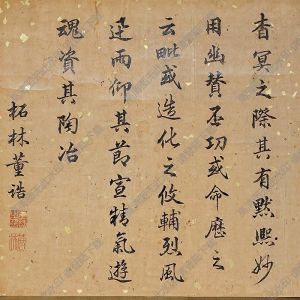 杳冥之際其有默熙妙
用幽贊丕功或命歷之
云毗或造化之攸輔烈風
迅而仰其節宣精氣遊
魂資其陶冶
拓林董誥